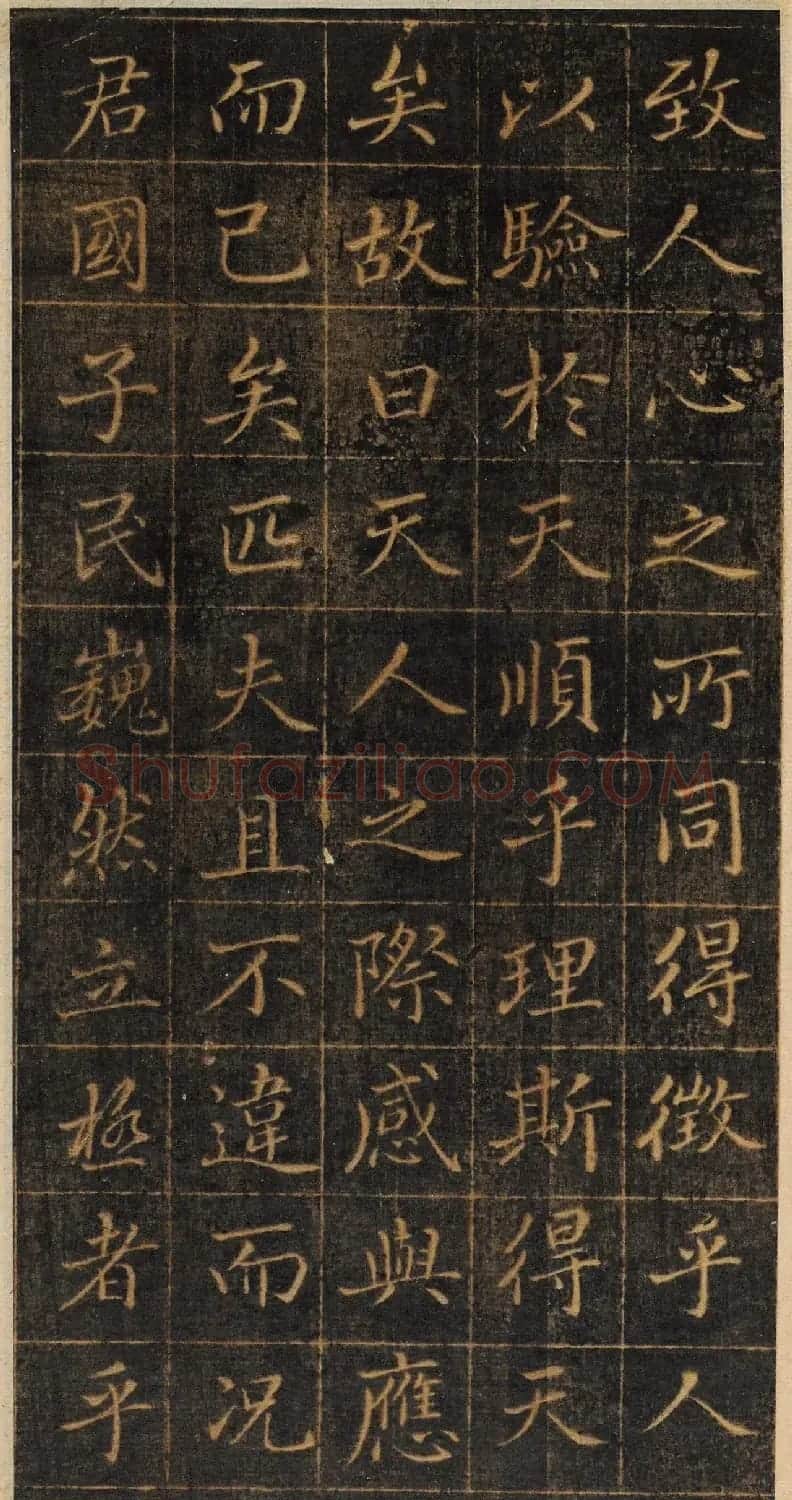 致人心之所同得徵乎人
以驗於天順乎理斯得天
矣故曰天人之際感與應
而已矣匹夫且不違而况
君國子民巍然立極者乎
Shufaziliao.COM